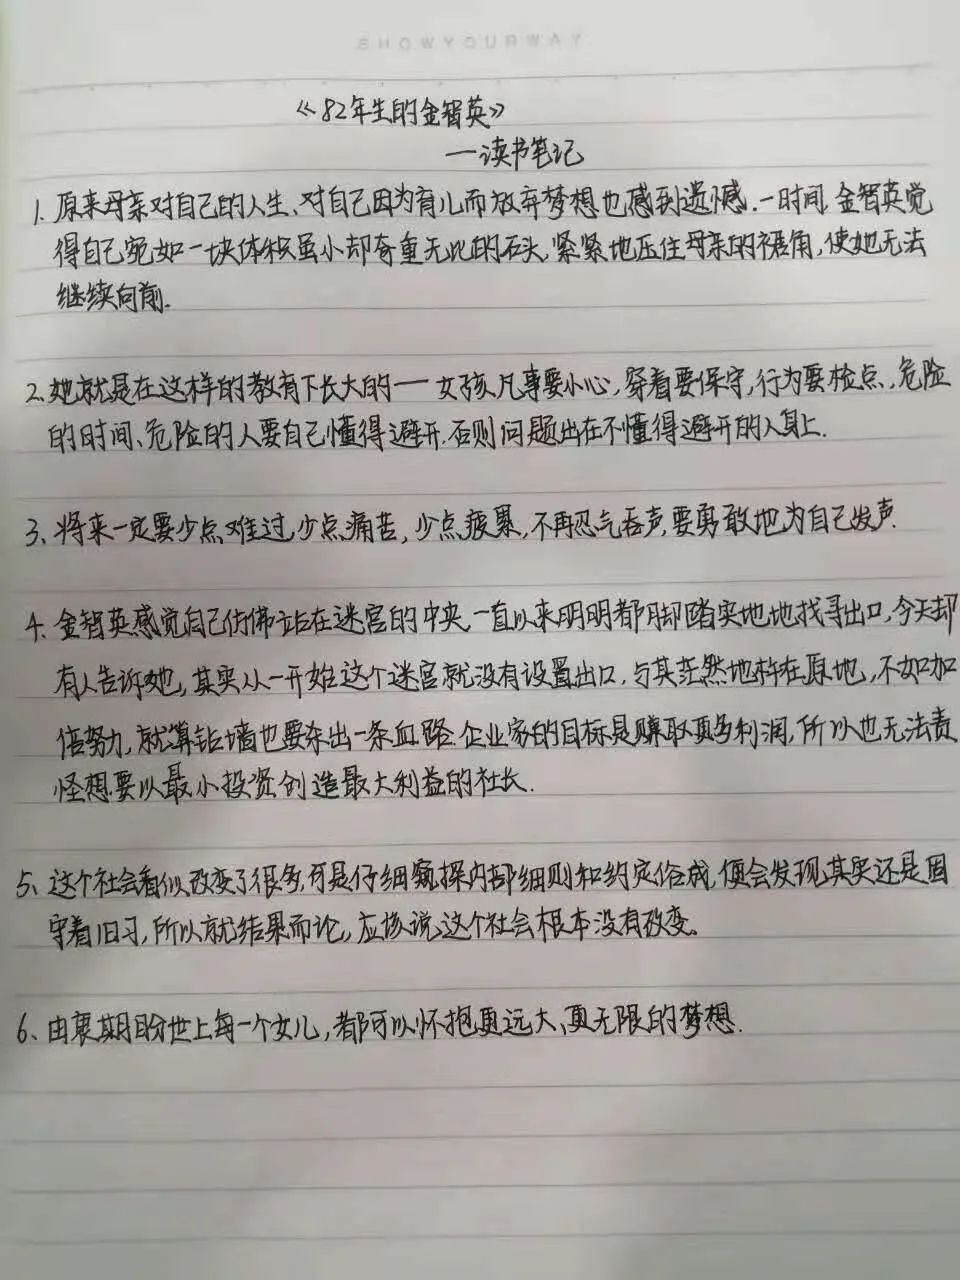 SHOWYOURWAY
《82年生的金智英》
—读书笔记
1. 原来母亲对自己的人生、对自己因为育儿而放弃梦想也感到遗憾.一时间,金智英觉
得自己宛如一块体积虽小却奇重无比的石头,紧紧地压住母亲的裙角,使她无法
继续向前.
2. 她就是在这样的教育下长大的——女孩凡事要小心,穿着要保守,行为要检点,危险
的时间、危险的人要自己懂得避开.否则问题出在不懂得避开的人身上.
3、将来一定要少点难过,少点痛苦,少点疲累,不再忍气吞声,要勇敢地为自己发声.
4. 金智英感觉自己仿佛站在迷宫的中央.一直以来明明都脚踏实地地找寻出口,今天却
有人告诉她,其实从一开始这个迷宫就没有设置出口,与其茫然地杵在原地,不如加
倍努力,就算钻墙也要杀出一条血路.企业家的目标是赚取更多利润,所以也无法责
怪想要以最小投资创造最大利益的社长.
5、这个社会看似改变了很多,可是仔细窥探内部细则和约定俗成,便会发现其实还是固
守着旧习,所以就结果而论,应该说这个社会根本没有改变。
6、由衷期盼世上每一个女儿,都可以怀抱更远大、更无限的梦想.